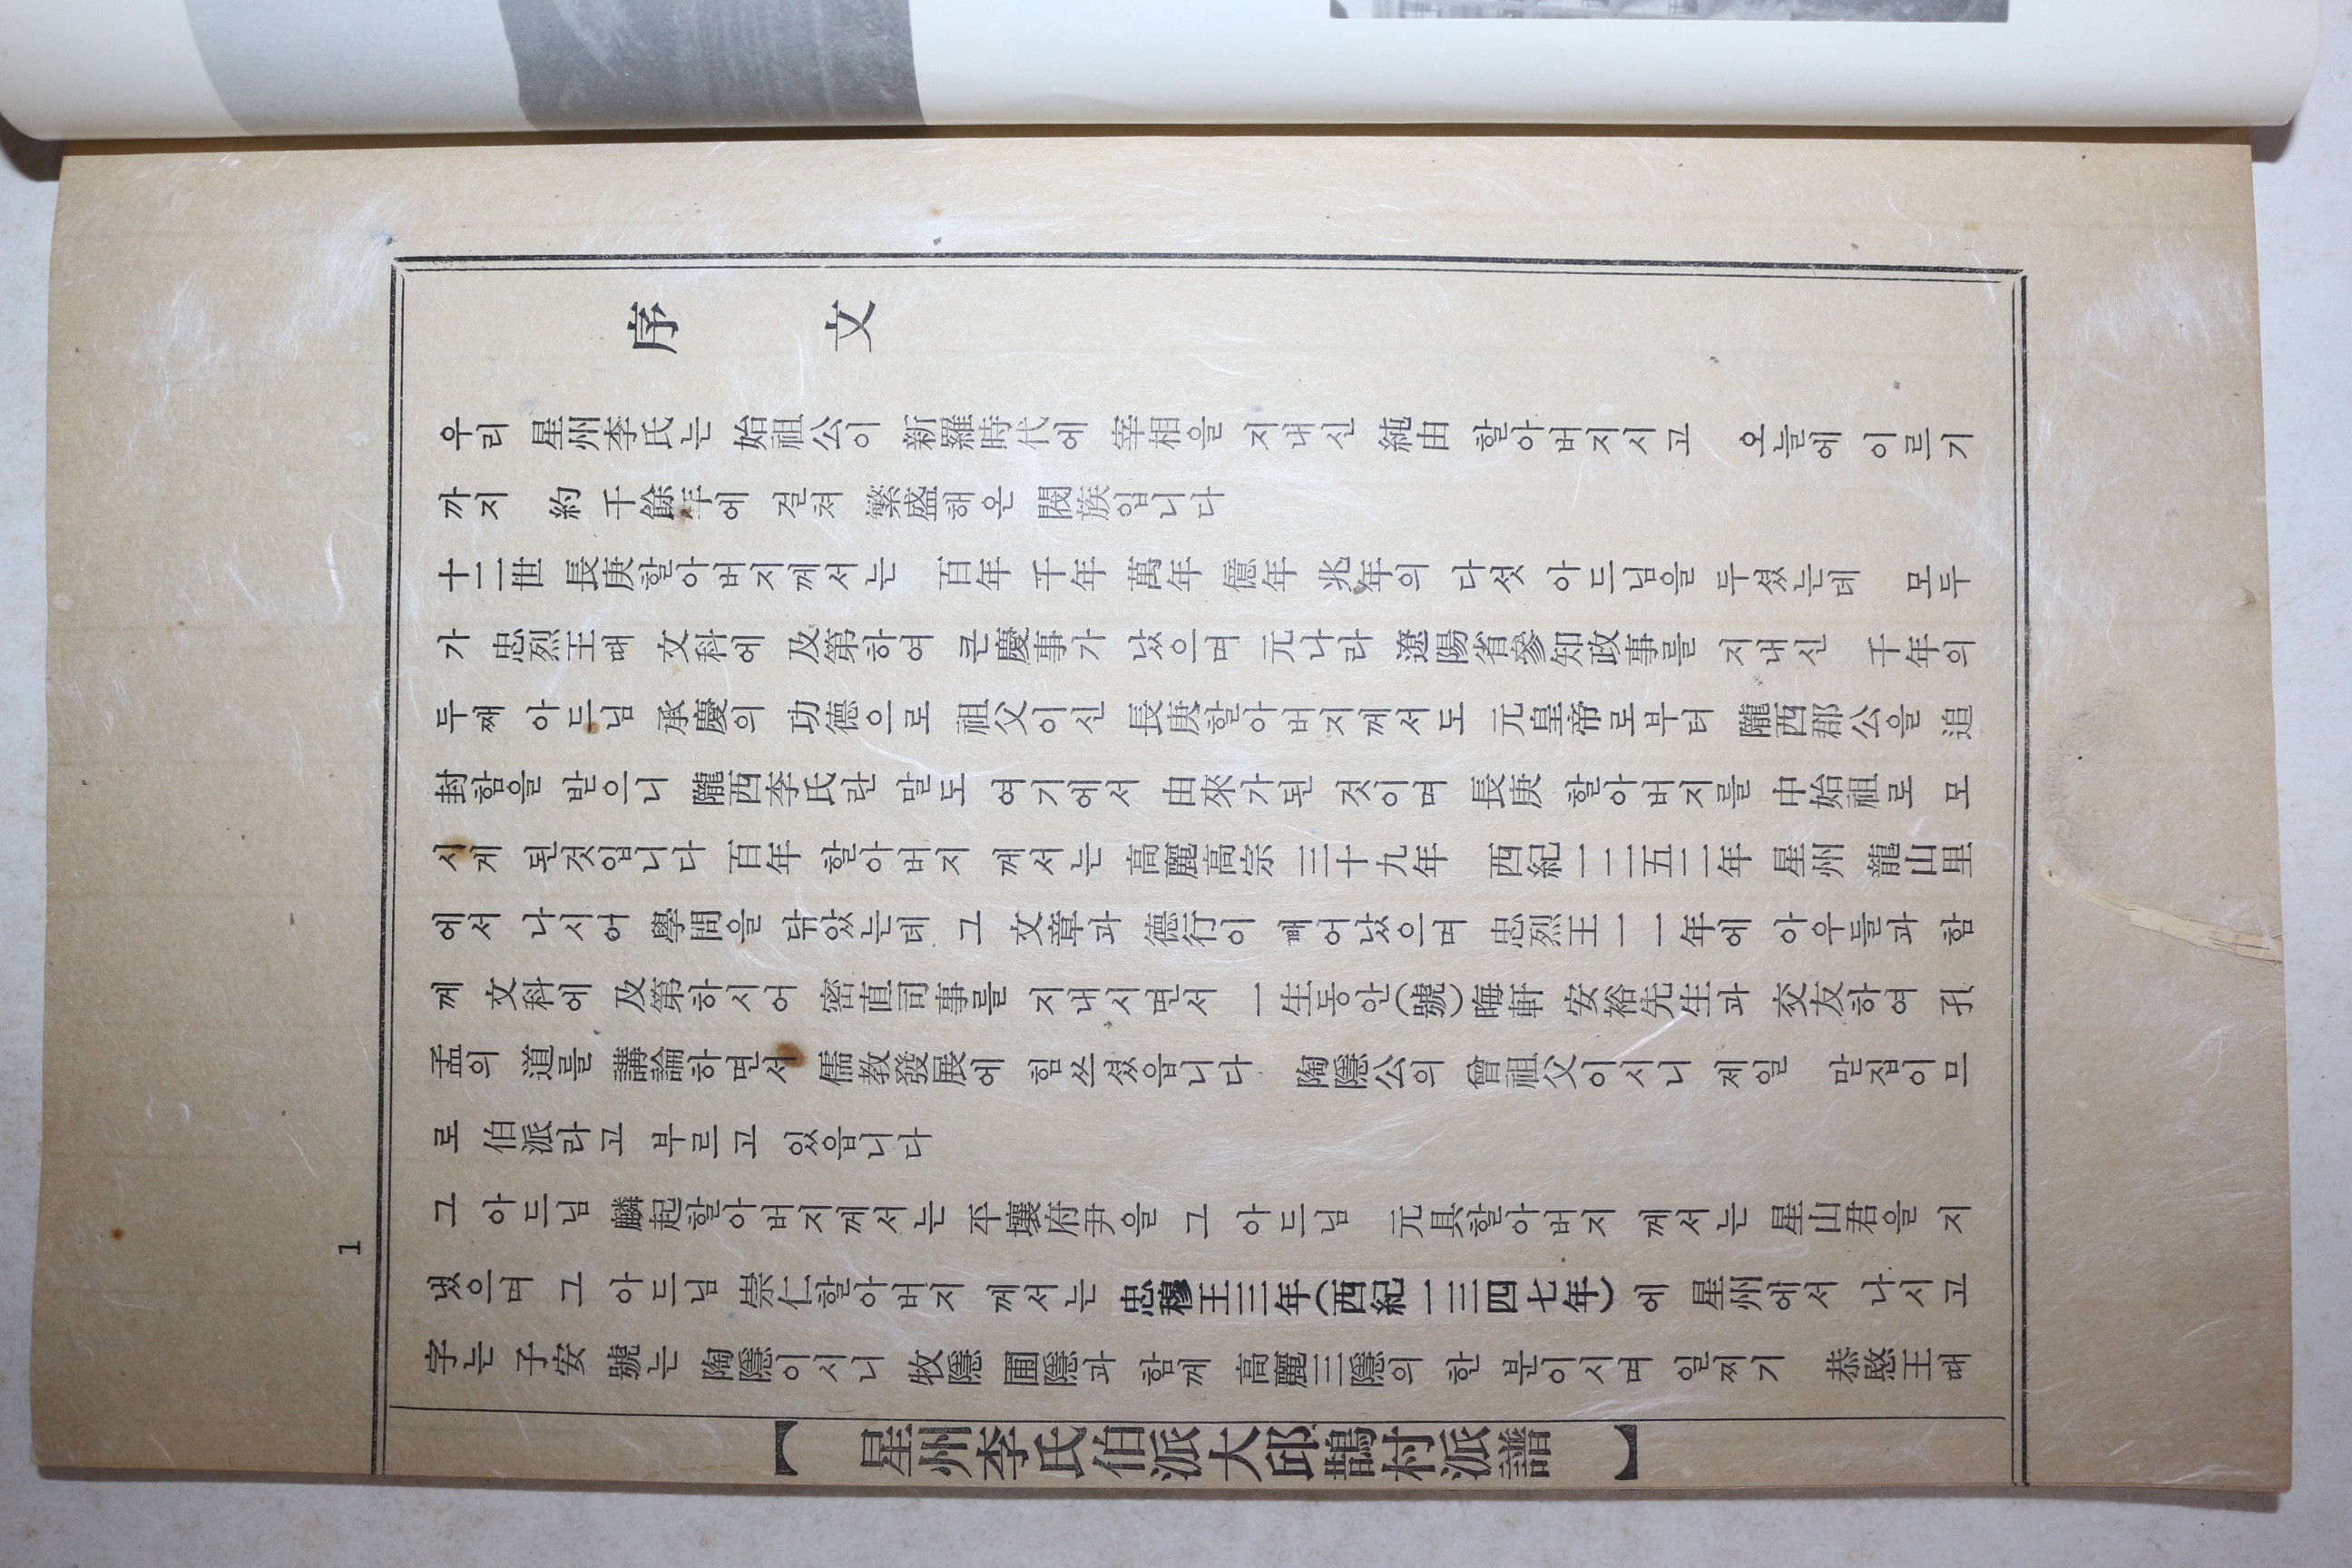 序 文
우리 星州李氏는 始祖公이 新羅時代에 宰相을 지내신 純由 할아버지시고 오늘에 이르기
까지 約 千餘年에 걸쳐 繁盛해온 閥族입니다
十二世 長庚할아버지께서는 百年 千年 萬年 億年 兆年의 다섯 아드님을 두셨는데 모두
가 忠烈王때 文科에 及第하여 큰慶事가 났으며 元나라 遼陽省參知政事를 지내신 千年의
두째 아드님 承慶의 功德으로 祖父이신 長庚할아버지께서도 元皇帝로부터 隴西郡公을 追
封함을 받으니 隴西李氏란 말도 여기에서 由來가된 것이며 長庚 할아버지를 中始祖로 모
시게 된것입니다 百年 할아버지 께서는 高麗高宗 三十九年 西紀一二五二年 星州 龍山里
에서 나시어 學問을 닦았는데 그 文章과 德行이 빼어났으며 忠烈王一一年에 아우들과 함
께 文科에 及第하시어 密直司事를 지내시면서 一生동안(號)晦軒 安裕先生과 交友하여 孔
孟의 道를 講論하면서 儒教發展에 힘쓰셨읍니다 陶隱公의 曾祖父이시니 제일 맏집이므
로 伯派라고 부르고 있읍니다
그 아드님 麟起할아버지께서는 平壤府尹을 그 아드님 元具할아버지 께서는 星山君을 지
냈으며 그 아드님 崇仁할아버지 께서는 忠穆王三年(西紀一三四七年)에 星州에서 나시고
字는 子安 號는 陶隱이시니 牧隱 圃隱과 함께 高麗三隱의 한 분이시며 일찌기 恭愍王때
【 星州李氏伯派大邱鵲村派譜 】
1